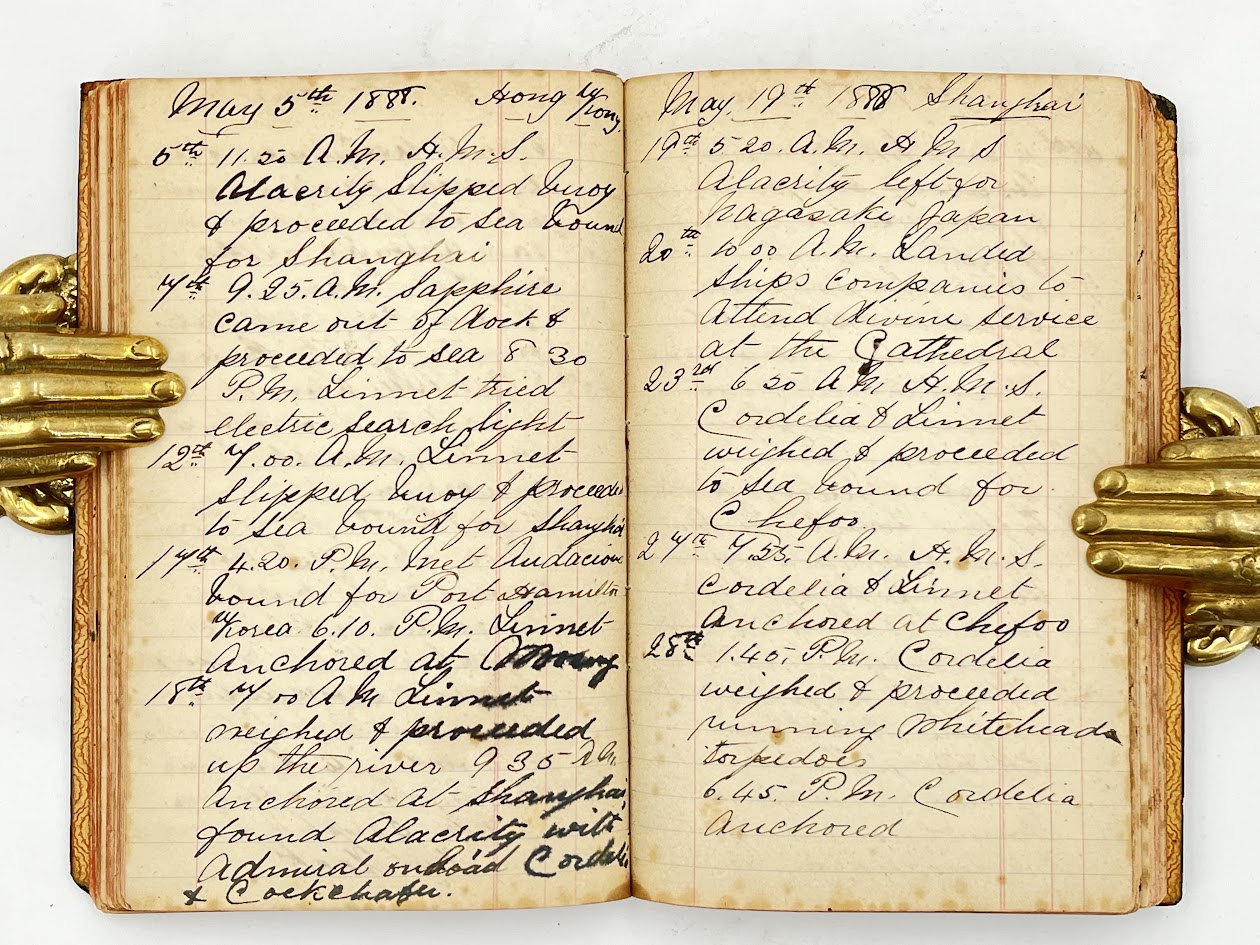 May 5th 1888. Hong Kong.
5th 11.20 A.M. H.M.S.
Alacrity slipped buoy
& proceeded to sea bound
for Shanghai
7th 9.25. A.M. Sapphire
came out of dock &
proceeded to sea 8 30
P.M. Linnet tried
electric search light
12th 7.00. A.M. Linnet
slipped buoy & proceeded
to sea bound for Shanghai
17th 4.20. P.M. met Audacious
bound for Port Hamilton
Korea 6.10. P.M. Linnet
Anchored at
18th 7 00 A M Linnet
weighed & proceeded
up the river 9 35 A M.
Anchored at Shanghai
found Alacrity with
Admiral onboad Cordelia
& Cockchafer.
May. 19th 1888 Shanghai
19th 5 20. A.M. H M S
Alacrity left for
Nagasake Japan
20th 10 00 A.M. Landed
ships companies to
Attend divine service
at the Cathedral
23rd 6 20 A M H.M.S.
Cordelia & Linnet
weighed & proceeded
to sea bound for
Chefoo
27th 7.55. A.M. H.M.S.
Cordelia & Linnet
Anchored at Chefoo
28th 1.45. P.M. Cordelia
weighed & proceeded
running Whiteheads
torpedoes
6.45. P.M. Cordelia
Anchored